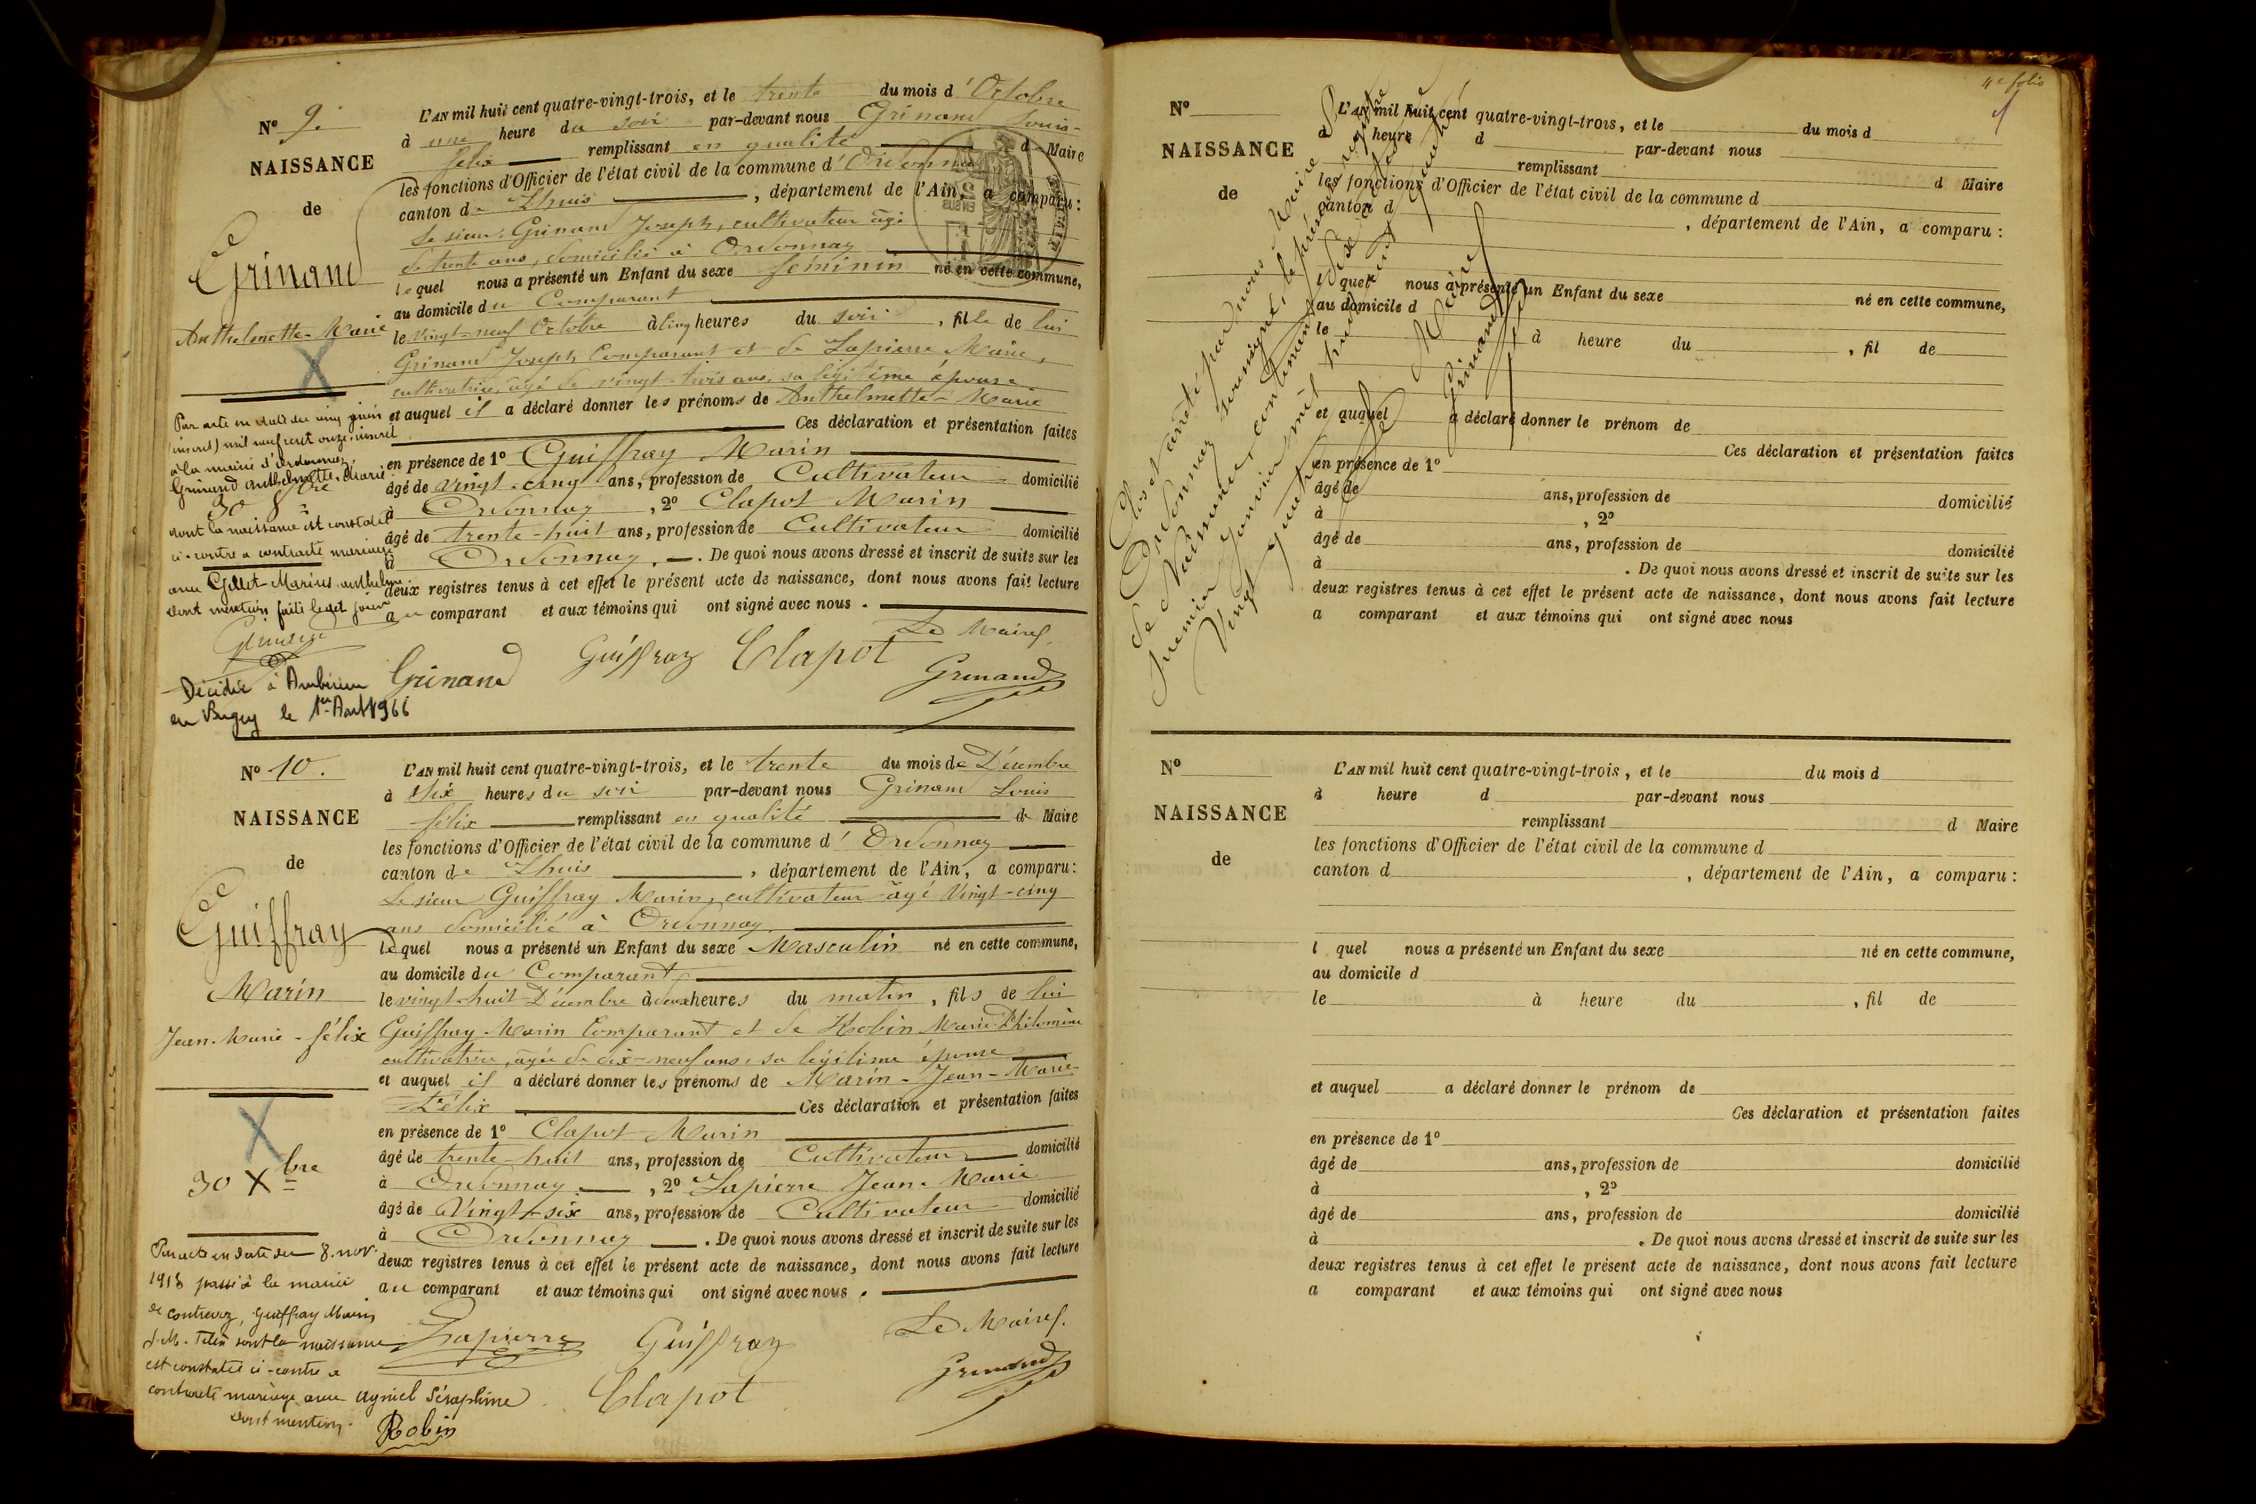 N° 9.
NAISSANCE
de
Grinand
Anthelmette-Marie
Par acte en date du cinq juin
mil neuf cent onze, inscrit
à la mairie d'Ordonnaz,
Grinand Anthelmette, Marie
30 8bre
dont la naissance est constatée
ci-contre a contracté mariage
avec Gillet Marius Anthelme
dont mention faite le dit jour
Décédée à Ambérieu
en Bugey le 1er Août 1966
L'AN mil huit cent quatre-vingt-trois, et le trente du mois d'Octobre
à une heure du soir par-devant nous Grinand Louis-
félix remplissant en qualité de Maire
les fonctions d'Officier de l'état civil de la commune d'Ordonnaz
canton de Lhuis , département de l'Ain, a comparu :
Le sieur Grinand Joseph, cultivateur âgé
de trente ans, domicilié à Ordonnaz
lequel nous a présenté un Enfant du sexe féminin né en cette commune,
au domicile du Comparant
le vingt-neuf Octobre à cinq heures du soir , fille de lui
Grinand Joseph Comparant et de Lapierre Marie,
cultivatrice, âgé de vingt-trois ans, sa légitime épouse
et auquel il a déclaré donner les prénoms de Anthelmette-Marie
Ces déclaration et présentation faites
en présence de 1° Guiffray Marin
âgé de vingt-cinq ans, profession de Cultivateur domicilié
à Ordonnaz , 2° Clapot Marin
âgé de trente-huit ans, profession de Cultivateur domicilié
à Ordonnaz. De quoi nous avons dressé et inscrit de suite sur les
deux registres tenus à cet effet le présent acte de naissance, dont nous avons fait lecture
au comparant et aux témoins qui ont signé avec nous.
Le Maire
Grinand Guiffray Clapot Grinand
N° 10.
NAISSANCE
de
Guiffray
Marin
Jean-Marie-félix
30 Xbre
Par acte en date du 8 nov.
1913 passé à la mairie
de Contrevoz, Guiffray Marin
J. M. Félix dont la naissance
est constatée ci-contre a
contracté mariage avec Ayniel Séraphine
dont mention.
Robin
L'AN mil huit cent quatre-vingt-trois, et le trente du mois de Décembre
à six heures du soir par-devant nous Grinand Louis
félix remplissant en qualité de Maire
les fonctions d'Officier de l'état civil de la commune d'Ordonnaz
canton de Lhuis , département de l'Ain, a comparu :
Le sieur Guiffray Marin, cultivateur âgé Vingt-cinq
ans domicilié à Ordonnaz
lequel nous a présenté un Enfant du sexe Masculin né en cette commune,
au domicile du Comparant,
le vingt-huit Décembre à deux heures du matin , fils de lui
Guiffray Marin Comparant et de Robin Marie Philomène
cultivatrice, âgée de dix-neuf ans, sa légitime épouse
et auquel il a déclaré donner les prénoms de Marin-Jean-Marie-
Félix Ces déclaration et présentation faites
en présence de 1° Clapot Marin
âgé de trente-huit ans, profession de Cultivateur domicilié
à Ordonnaz. , 2° Lapierre Jean-Marie
âgé de Vingt-six ans, profession de Cultivateur domicilié
à Ordonnaz. De quoi nous avons dressé et inscrit de suite sur les
deux registres tenus à cet effet le présent acte de naissance, dont nous avons fait lecture
au comparant et aux témoins qui ont signé avec nous.
Le Maire
Lapierre Guiffray Grinand
Clapot
4e folio
N°
NAISSANCE
de
L'AN mil huit cent quatre-vingt-trois, et le du mois d
à heure d par-devant nous
remplissant d Maire
les fonctions d'Officier de l'état civil de la commune d
canton d , département de l'Ain, a comparu :
l quel nous a présenté un Enfant du sexe né en cette commune,
au domicile d
le à heure du , fil de
et auquel a déclaré donner le prénom de
Ces déclaration et présentation faites
en présence de 1°
âgé de ans, profession de domicilié
à , 2°
âgé de ans, profession de domicilié
à . De quoi nous avons dressé et inscrit de suite sur les
deux registres tenus à cet effet le présent acte de naissance, dont nous avons fait lecture
a comparant et aux témoins qui ont signé avec nous
Clos et arrêté par nous Maire
d'Ordonnaz soussigné, le présent registre
de Naissance, contenant dix actes,
premier Janvier mil huit cent
Vingt quatre
Le Maire
Grinand
N°
NAISSANCE
de
L'AN mil huit cent quatre-vingt-trois, et le du mois d
à heure d par-devant nous
remplissant d Maire
les fonctions d'Officier de l'état civil de la commune d
canton d , département de l'Ain, a comparu :
l quel nous a présenté un Enfant du sexe né en cette commune,
au domicile d
le à heure du , fil de
et auquel a déclaré donner le prénom de
Ces déclaration et présentation faites
en présence de 1°
âgé de ans, profession de domicilié
à , 2°
âgé de ans, profession de domicilié
à . De quoi nous avons dressé et inscrit de suite sur les
deux registres tenus à cet effet le présent acte de naissance, dont nous avons fait lecture
a comparant et aux témoins qui ont signé avec nous